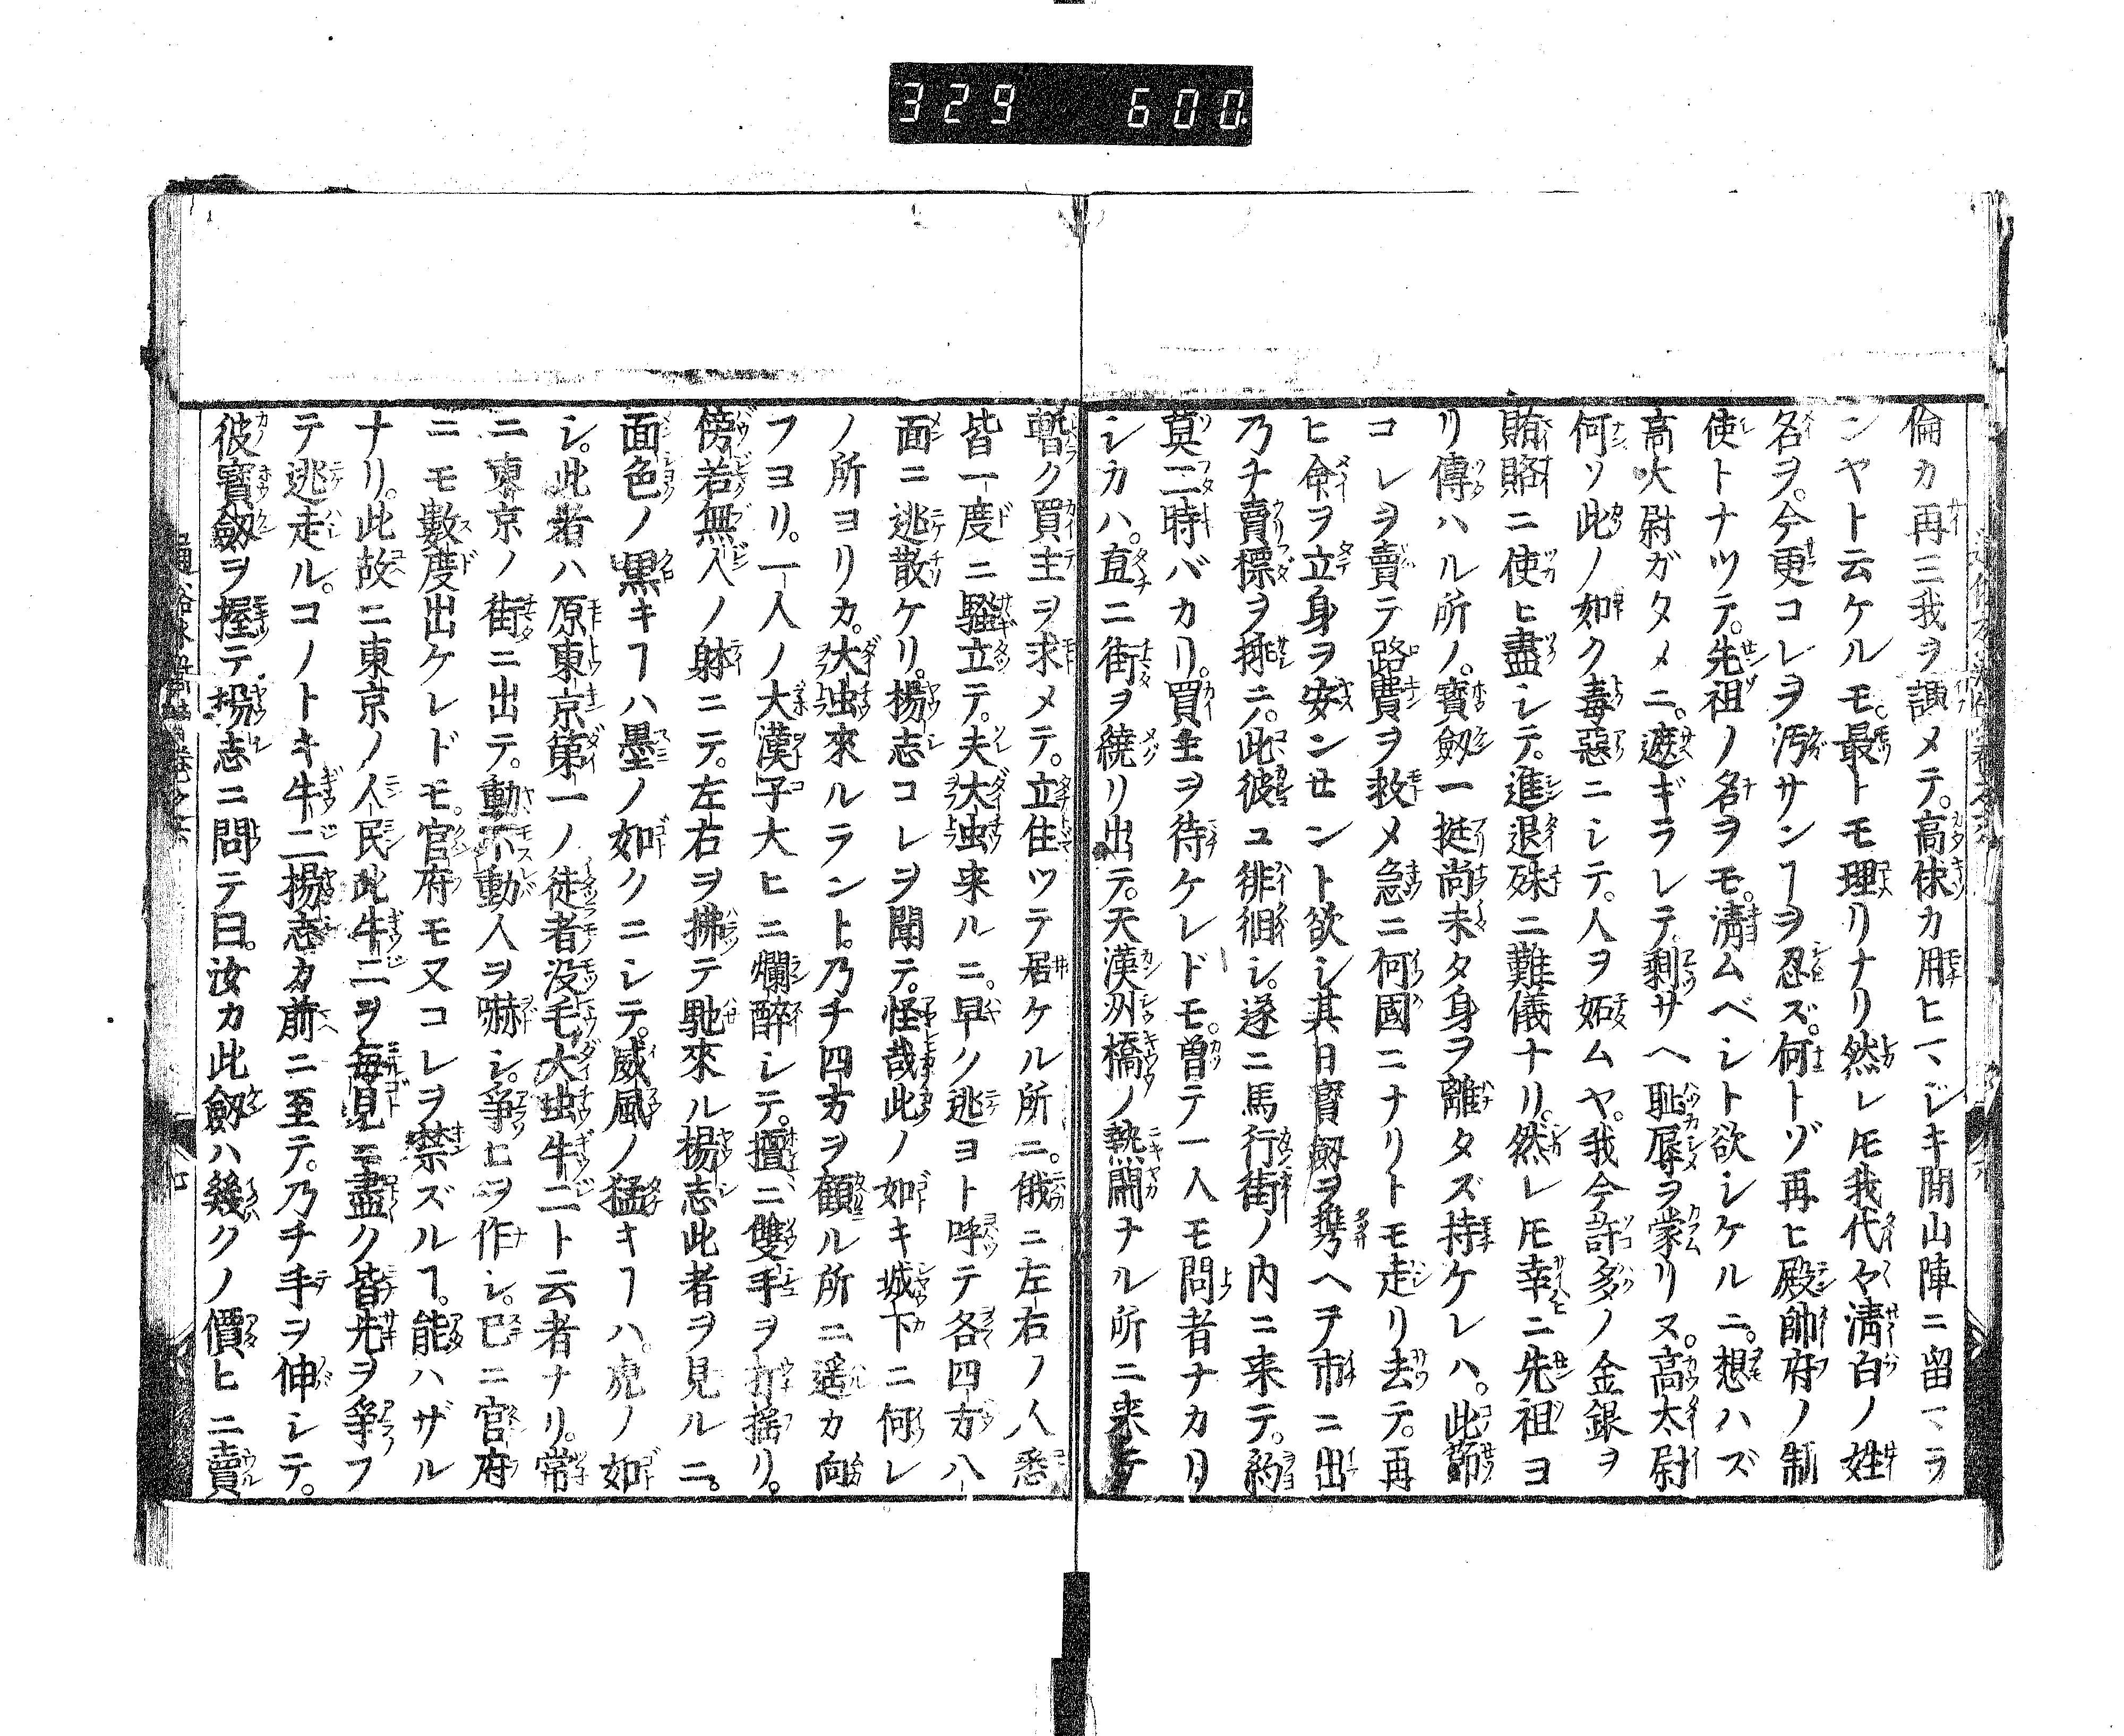 329 600
倫カ再三我ヲ諏メテ。高俅カ用ヒ一ヽジキ間山陣ニ留一ヽラ
ンヤト云ケルモ。最トモ理リナリ然レ𪜈我代々清白ノ姓
名ヲ。今更コレヲ汚サンヿヲ忍ズ。何トゾ再ヒ殿帥府ノ制
使トナツテ。先祖ノ名ヲモ。清ムベシト欲シケルニ。想ハズ
高火尉ガタメニ。遮ギラレテ剰サヘ恥辱ヲ蒙リヌ。高太尉
何ソ此ノ如ク毒惡ニシテ。人ヲ妬ムヤ。我今許多ノ金銀ヲ
賄賂ニ使ヒ盡シテ。進退殊ニ難儀ナリ。然レ𪜈幸ニ先祖ヨ
リ傳ハル所ノ。寳劔一挺尚未タ身ヲ離タズ持ケレハ。此節
コレヲ賣テ路費ヲ救メ急ニ何國ニナリトモ走リ去テ。再
ヒ命ヲ立身ヲ安ンセント欲シ其日寳劔ヲ携ヘテ市ニ出
乃チ賣標ヲ挿ニ。此彼ユ徘徊シ。遂ニ馬行街ノ内ニ来テ。約
莫二時バカリ。買主ヲ待ケレドモ。曽テ一人モ問者ナカリ
シカハ。直ニ街ヲ繞リ出テ。天漢洲橋ノ熱鬧ナル所ニ来テ
暫ク買主ヲ求メテ。立住ツテ居ケル所ニ。俄ニ左右ノ人悉
皆一度ニ騒立テ。夫大虫来ルニ。早ク逃ヨト呼テ各四方八
面ニ逃散ケリ。楊志コレヲ聞テ。怪哉此ノ如キ城下ニ何レ
ノ所ヨリカ。大虫來ルラント。乃チ四方ヲ顧ル所ニ遥カ向
フヨリ。一人ノ大漢子大ヒニ爛醉シテ。擅ニ雙手ヲ打搖リ。
傍若無人ノ躰ニテ。左右ヲ拂テ馳來ル楊志此者ヲ見ルニ。
面色ノ黒キヿハ墨ノ如クニシテ。威風ノ猛キヿハ。虎ノ如
シ。此者ハ原東京第一ノ徒者没毛大虫牛二ト云者ナリ。常
ニ東京ノ街ニ出テ。動不動人ヲ嚇シ。爭ヒヲ作シ。已ニ官府
ニモ數度出ケレドモ。官府モ又コレヲ禁ズルヿ。能ハザル
ナリ。此故ニ東京ノ人民此牛二ヲ毎見ニ盡ク皆先ヲ爭フ
テ逃走ル。コノトキ牛二楊志カ前ニ至テ。乃チ手ヲ伸シテ。
彼寳劔ヲ握テ。楊志ニ問テ曰。汝カ此劔ハ幾クノ價ヒニ賣